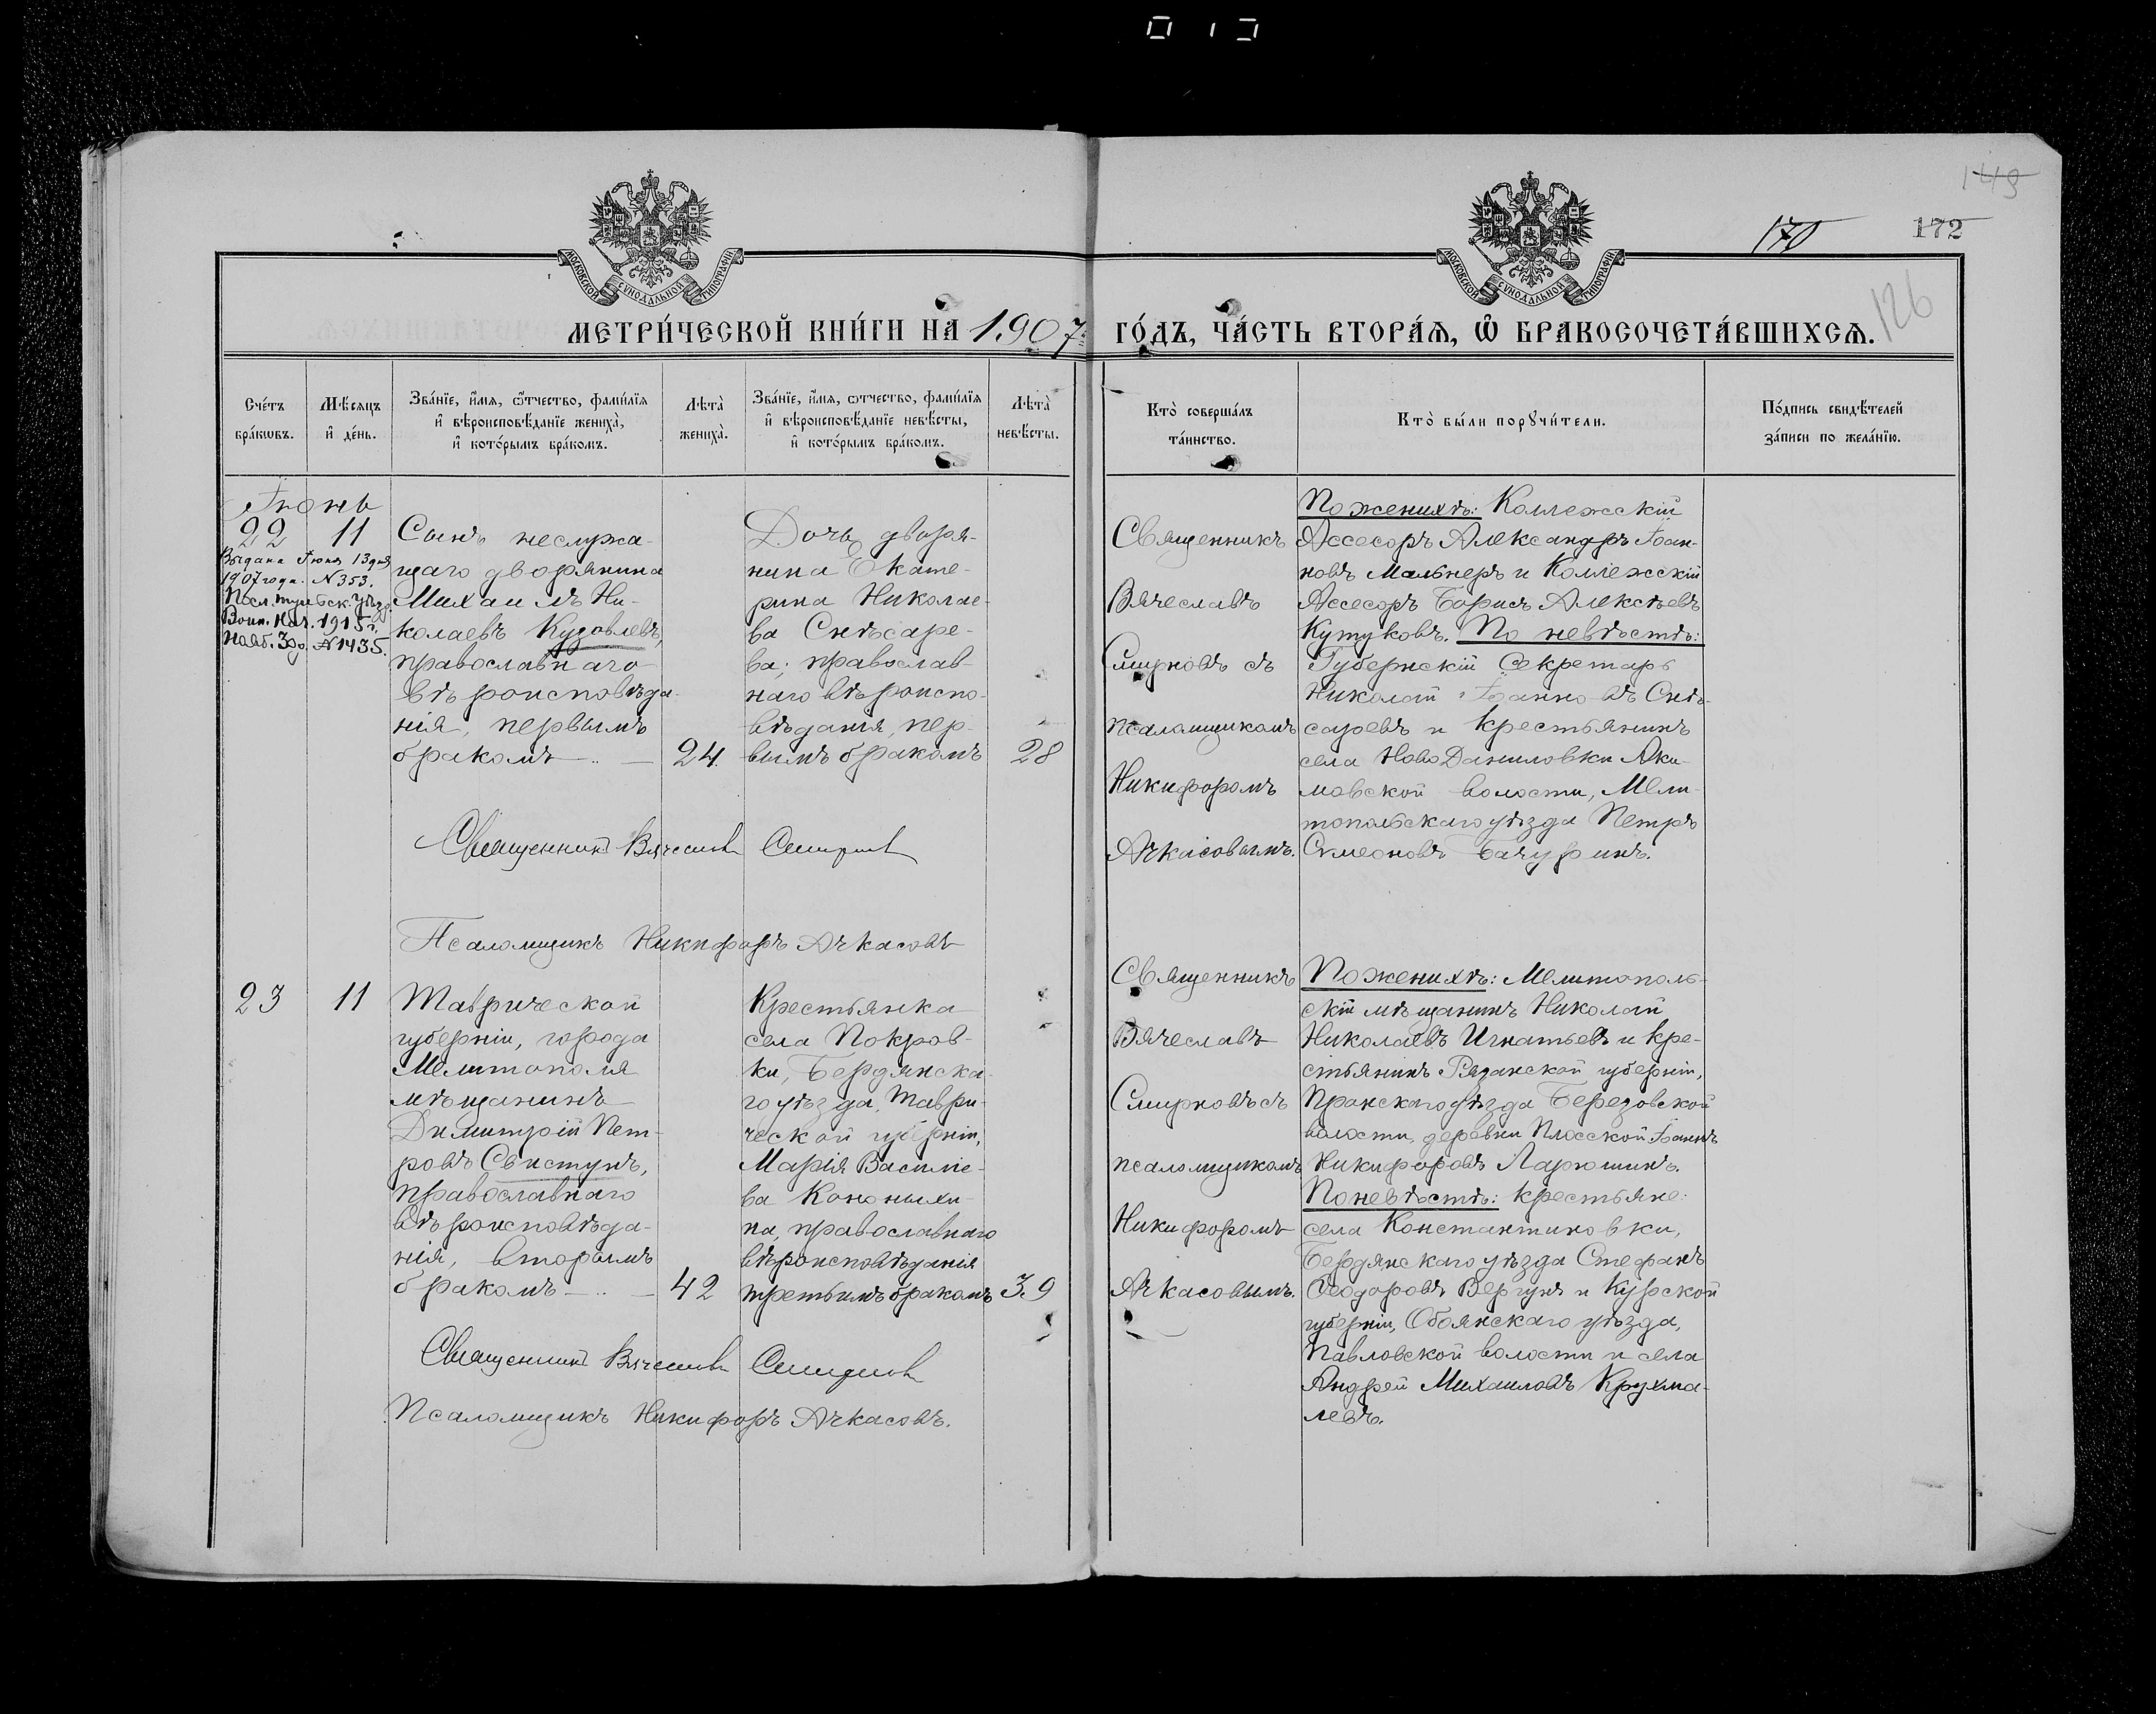 149
170
172
126
МОСКОВСКОЙ СѴНОДАЛЬНОЙ ТИПОГРАФІИ
МОСКОВСКОЙ СѴНОДАЛЬНОЙ ТИПОГРАФІИ
МЕТРИ́ЧЕСКОЙ КНИ́ГИ НА 1907 ГО́ДЪ, ЧА́СТЬ ВТОРА́Ѧ, Ѽ БРАКОСОЧЕТА́ВШИХСѦ.
Сче́тъ бра́кѡвъ.
Мѣ́сѧцъ и҆ де́нь.
Зва́нїе, и҆́мѧ, ѻ҆́тчество, фами́лїѧ и҆ вѣроисповѣ́данїе жениха̀, и҆ кото́рымъ бра́комъ.
Лѣта̀ жениха̀.
Зва́нїе, и҆́мѧ, ѻ҆́тчество, фами́лїѧ и҆ вѣроисповѣ́данїе невѣ́сты, и҆ кото́рымъ бра́комъ.
Лѣта̀ невѣ́сты.
Кто̀ соверша́лъ та́инство.
Кто̀ бы́ли порꙋчи́тели.
По́дпись свидѣ́телей за́писи по жела́нїю.
Іюнь
22
11
Выдана Іюня 13 дня
1907 года. N 353.
Воин. Нач. 1915 г.
Нояб. 30 д. N 1435.
Сынъ неслужа-
щаго дворянина
Михаилъ Ни-
колаевъ Кузовлевъ,
православнаго
вѣроисповѣда-
нія, первымъ
бракомъ
24.
Дочь дворя-
нина Екате-
рина Николае-
ва Снѣсаре-
ва; православ-
наго вѣроиспо-
вѣданія, пер-
вымъ бракомъ
28
Священникъ
Вячеславъ
Смирновъ съ
псаломщикомъ
Никифоромъ
Ачкасовымъ.
По женихѣ: Коллежскій
Ассесоръ Александръ Іоан-
новъ Мальнеръ и Коллежскій
Ассесоръ Борисъ Алексѣевъ
Кутуковъ. По невѣстѣ:
Губернскій Секретарь
Николай Іоанновъ Снѣ-
саревъ и крестьянинъ
села НовоДаниловки Аки-
мовской волости, Мели-
топольскаго уѣзда Петръ
Симеоновъ Бачуринъ.
Священникъ Вячеславъ Смирновъ
Псаломщикъ Никифоръ Ачкасовъ
23
11
Таврической
губерніи, города
Мелитополя
мѣщанинъ
Димитрій Пет-
ровъ Свистунъ,
православнаго
вѣроисповѣда-
нія, вторымъ
бракомъ
42
Крестьянка
села Покров-
ки, Бердянска-
го уѣзда, Таври-
ческой губерніи,
Марія Василіе-
ва Кононыхи-
на, православнаго
вѣроисповѣданія
третьимъ бракомъ
39
Священникъ
Вячеславъ
Смирновъ съ
псаломщикомъ
Никифоромъ
Ачкасовымъ.
По женихѣ: Мелитополь-
скій мѣщанинъ Николай
Николаевъ Игнатьевъ и кре-
стьянинъ Рязанской губерніи,
Пронскаго уѣзда Березовской
волости, деревни Плосской Іоаннъ
Никифоровъ Ларюшинъ.
По невѣстѣ: крестьяне:
села Константиновки,
Бердянскаго уѣзда Стефанъ
Ѳеодоровъ Вергунъ и Курской
губерніи, Обоянскаго уѣзда,
Павловской волости и села
Андрей Михаиловъ Крухма-
левъ.
Священникъ Вячеславъ Смирновъ
Псаломщикъ Никифоръ Ачкасовъ.